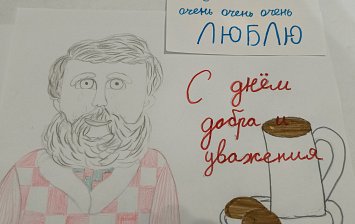 очень очень очень
ЛЮБЛЮ
С днём
добра и
уважения